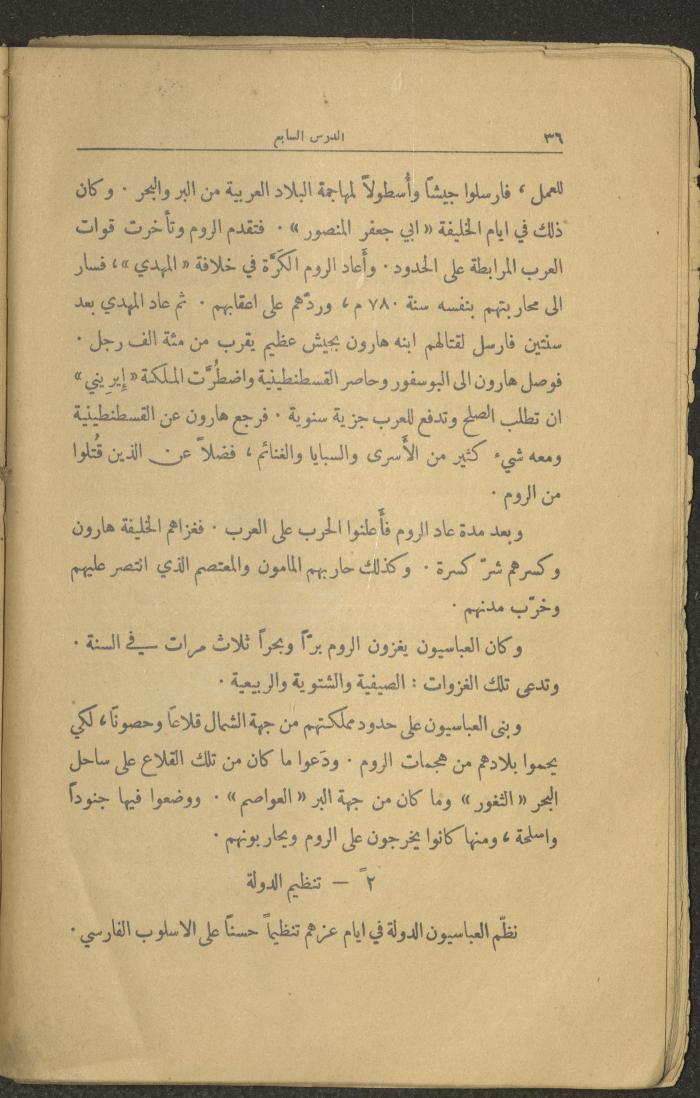 ٣٦
الدرس السابع
للعمل ، فارسلوا جيشاً وأُسطولاً لمهاجمة البلاد العربية من البر والبحر . وكان
ذلك في ايام الخليفة « ابي جعفر المنصور » . فتقدم الروم وتأخرت قوات
العرب المرابطة على الحدود . وأَعاد الروم الكَرَّة في خلافة « المهدي » ، فسار
الى محاربتهم بنفسه سنة ٧٨٠ م ، وردّهم على اعقابهم . ثم عاد المهدي بعد
سنتين فارسل لقتالهم ابنه هارون بجيش عظيم يقرب من مئة الف رجل .
فوصل هارون الى البوسفور وحاصر القسطنطينية واضطُرَّت الملكة « إيريني »
ان تطلب الصلح وتدفع للعرب جزية سنوية . فرجع هارون عن القسطنطينية
ومعه شيء كثير من الأَسرى والسبايا والغنائم ، فضلاً عن الذين قُتلوا
من الروم .
وبعد مدة عاد الروم فأَعلنوا الحرب على العرب . فغزاهم الخليفة هارون
وكسرهم شرّ كسرة . وكذلك حاربهم المامون والمعتصم الذي انتصر عليهم
وخرّب مدنهم .
وكان العباسيون يغزون الروم برّاً وبحراً ثلاث مرات في السنة .
وتدعى تلك الغزوات : الصيفية والشتوية والربيعية .
وبنى العباسيون على حدود مملكتهم من جهة الشمال قلاعاً وحصوناً ، لكي
يحموا بلادهم من هجمات الروم . ودَعوا ما كان من تلك القلاع على ساحل
البحر « الثغور » وما كان من جهة البر « العواصم » . ووضعوا فيها جنوداً
واسلحة ، ومنها كانوا يخرجون على الروم ويحاربونهم .
٢ً — تنظيم الدولة
نظّم العباسيون الدولة في ايام عزهم تنظيماً حسناً على الاسلوب الفارسي .